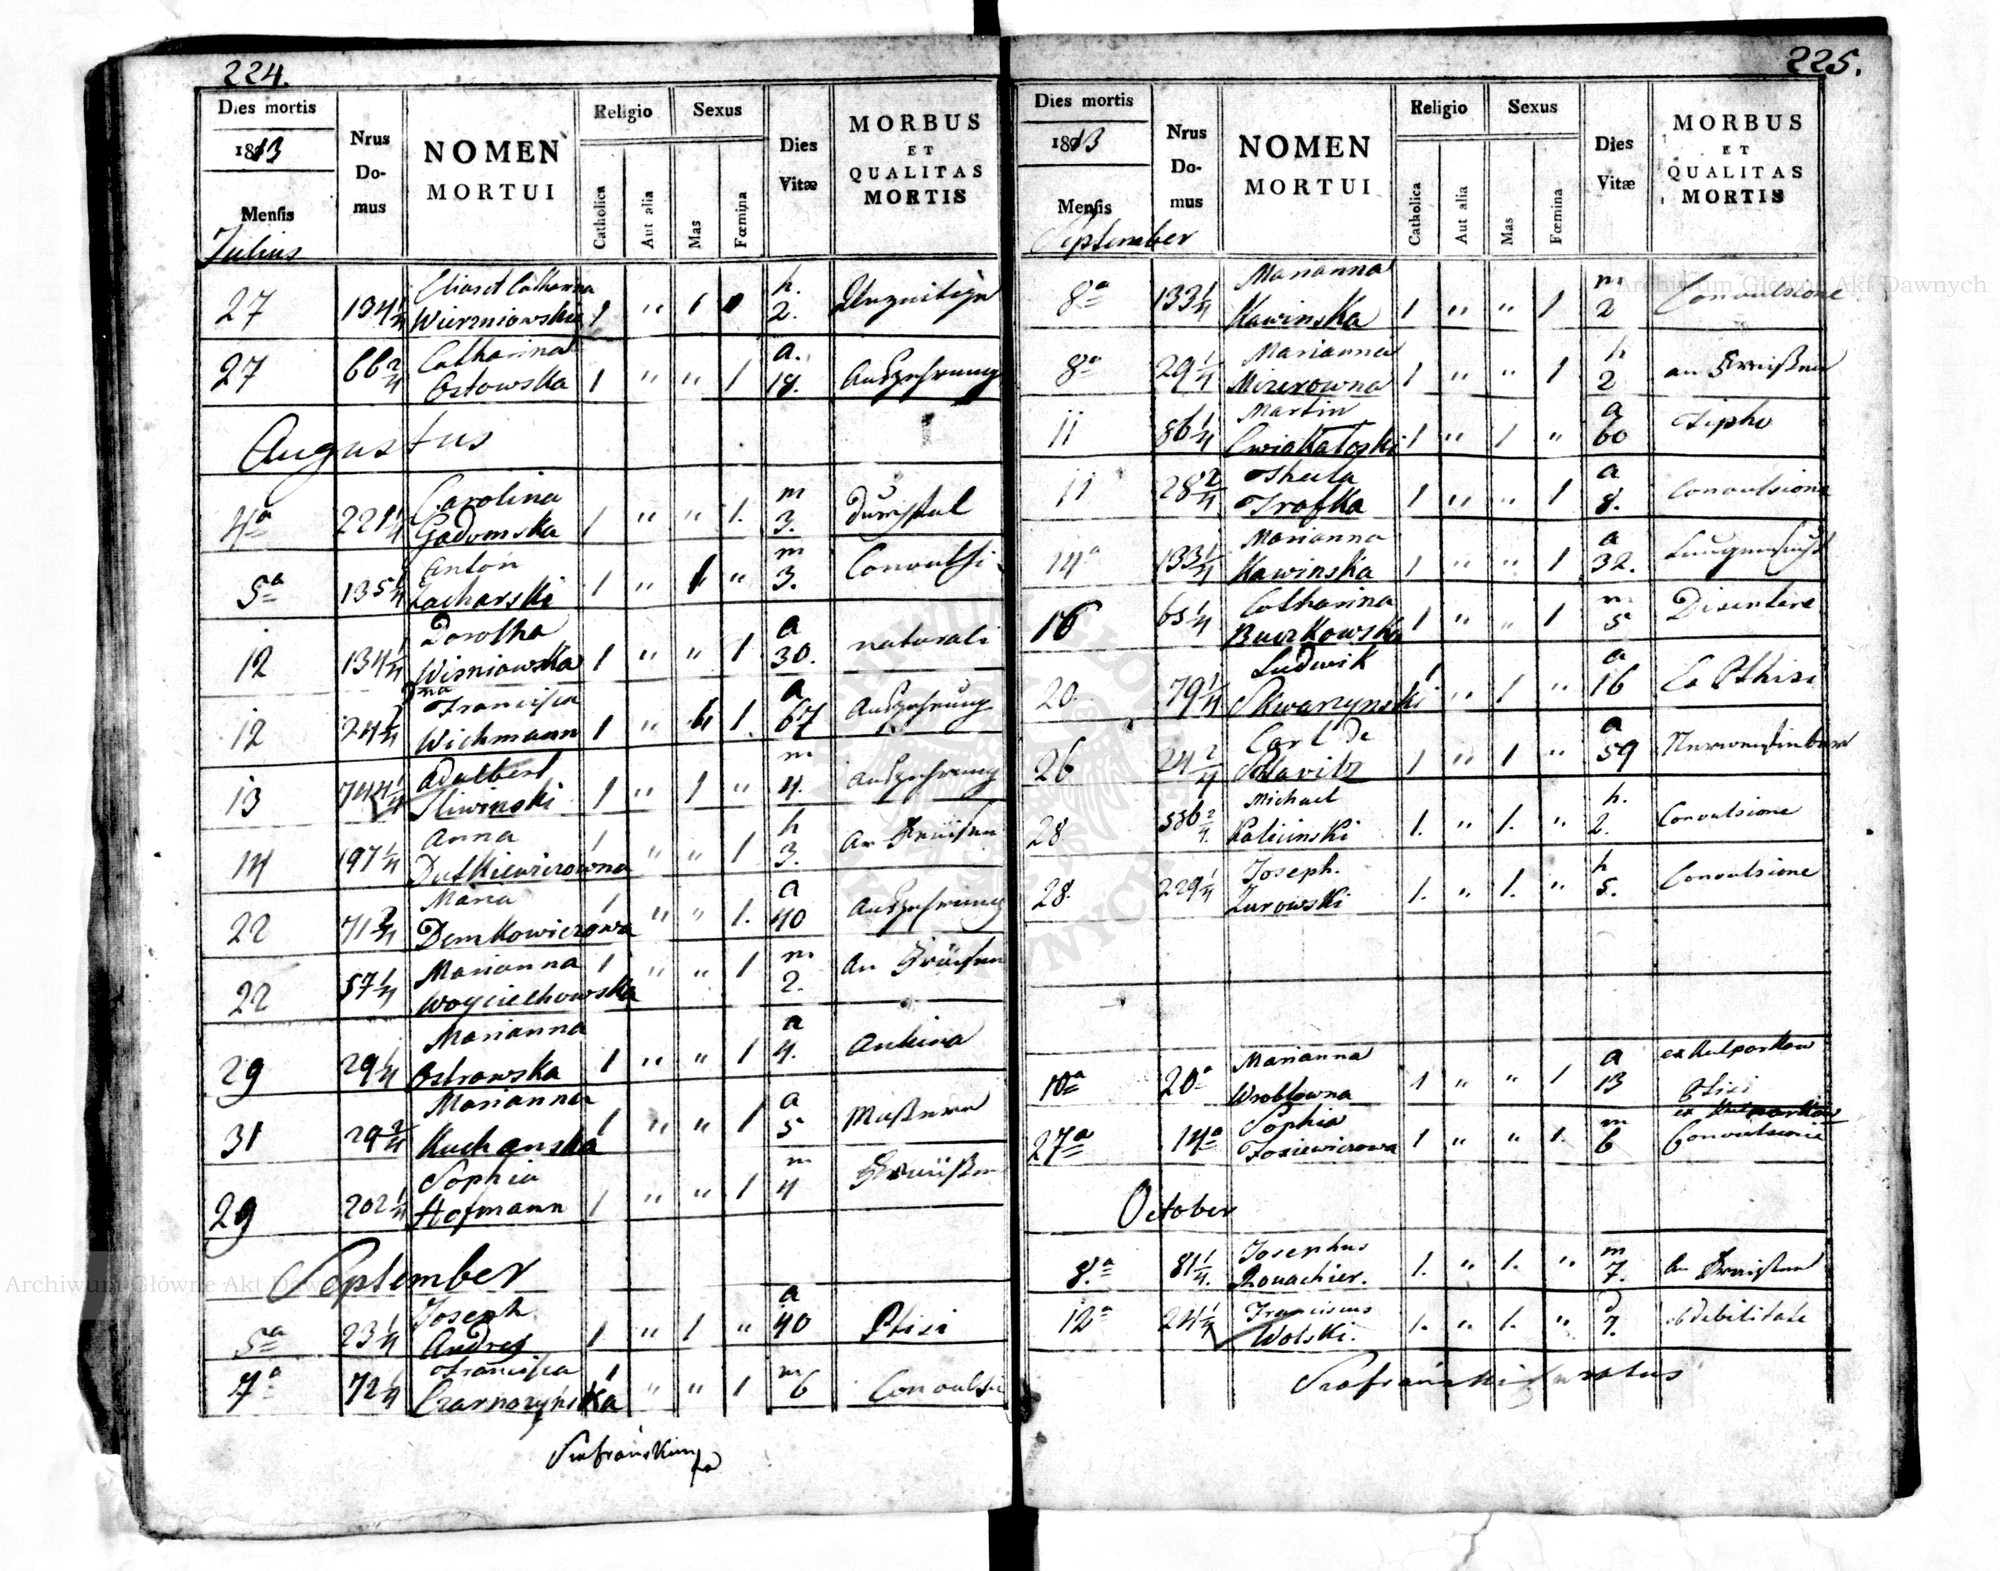 224.
Dies mortis
1813
Mensis
Julius
Nrus Do-mus
NOMEN
MORTUI
Religio
Catholica
Aut alia
Sexus
Mas
Fœmina
Dies
Vitæ
MORBUS
ET
QUALITAS
MORTIS
27 134 1/4 Catharina Wierzniowskie 1 " 1 1 h. 2. Unzeitige
27 66 2/4 Catharina Ostowska 1 " " 1 a. 18. Auszehrung
Augustus
4a 221 1/4 Carolina Gadomska 1 " " 1. m 3.
5a 135 1/4 Anton Zacharski 1 " 1 " m 3. Convulsi
12 134 1/4 Dorotha Wisniowska 1 " " 1 a 30. naturali
12 24 2/4 Dna Francisca Wichmann 1 " 1 a 67 Auszehrung
13 744 1/4 Adalbert Sliwinski 1 " 1 " m 4. Auszehrung
14 197 1/4 Anna Dutkiewiczowna 1 " " 1 h 3. An Fräisen
22 71 2/4 Maria Demkowiczowa 1 " " 1. a 40 Auszehrung
22 57 1/4 Marianna Woyciechowska 1 " " 1 m 2. An Fräisen
29 29 1/4 Marianna Ostrowska 1 " " 1 a 4.
31 29 2/4 Marianna Kuchanska 1 " " 1 a 5 Maßern
29 202 1/4 Sophia Hofmann 1 " " 1 m 4
September
5a 23 1/4 Joseph Andres 1 " 1 " a 40 Ptisi
7a 72 1/4 Francisca Czarnozynska 1 " " 1 m 6 Convulsi
225.
Dies mortis
1813
Mensis
September
Nrus Do-mus
NOMEN
MORTUI
Religio
Catholica
Aut alia
Sexus
Mas
Fœmina
Dies
Vitæ
MORBUS
ET
QUALITAS
MORTIS
8a 133 1/4 Marianna Kawinska 1 " " 1 m 2 Convulsione
8a 29 1/4 Marianna Mizerowna 1 " " 1 h 2 an Fraißen
11 86 1/4 Martin Cwiakaloski 1 " 1 " a 60 Tipho
11 28 2/4 Thecla Trafka 1 " " 1 a 8. Convulsione
14a 133 1/4 Marianna Kawinska 1 " " 1 a 32. Lungensucht
16 65 1/4 Catharina Buczkowska 1 " " 1 m 5 Disenteria
20. 79 1/4 Ludwik Skwarzynski 1 " 1 " a 16 Ex Pthisi
26 24 2/4 Carl De 1 " 1 " a 59
28 556 2/4. Michael Kalicinski 1. " 1. " h. 2. Convulsione
28. 229 1/4 Joseph. Zurowski 1. " 1. " h 5. Convulsione
10a 20a Marianna Wroblowna 1 " " 1 a 13 ex Kulparkow Ptisi
27a 14a Sophia Josiewiczowa 1 " " 1. m 6 ex Kulparkow Convulsione
October
8.a 81 1/4. Josephus 1. " 1. " m 7. An Fraißen
12a 24 1/4 Franciscus Wolski. 1. " 1. " d 7. debilitate
Archiwum Główne Akt Dawnych
Archiwum Główne Akt Dawnych